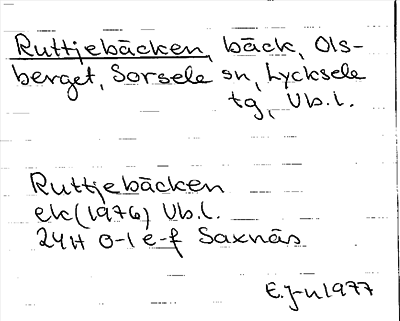 Ruttjebäcken, bäck, Ols-
berget, Sorsele sn, Lycksele
tg, Vb.l.
Ruttjebäcken
ek (1976) Vb.l.
24H 0-1 e-f Saxnäs
E.J-n 1977